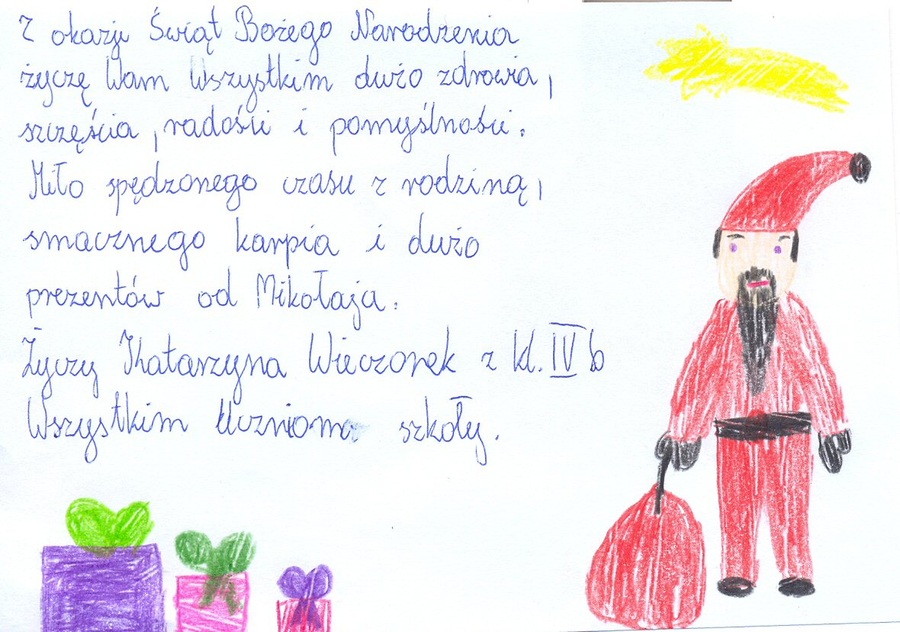 Z okazji Świąt Bożego Narodzenia
życzę Wam Wszystkim dużo zdrowia,
szczęścia, radości i pomyślności.
Miło spędzonego czasu z rodziną,
smacznego karpia i dużo
prezentów od Mikołaja.
Życzy Katarzyna Wieczorek z kl. IV b
Wszystkim Uczniom szkoły.